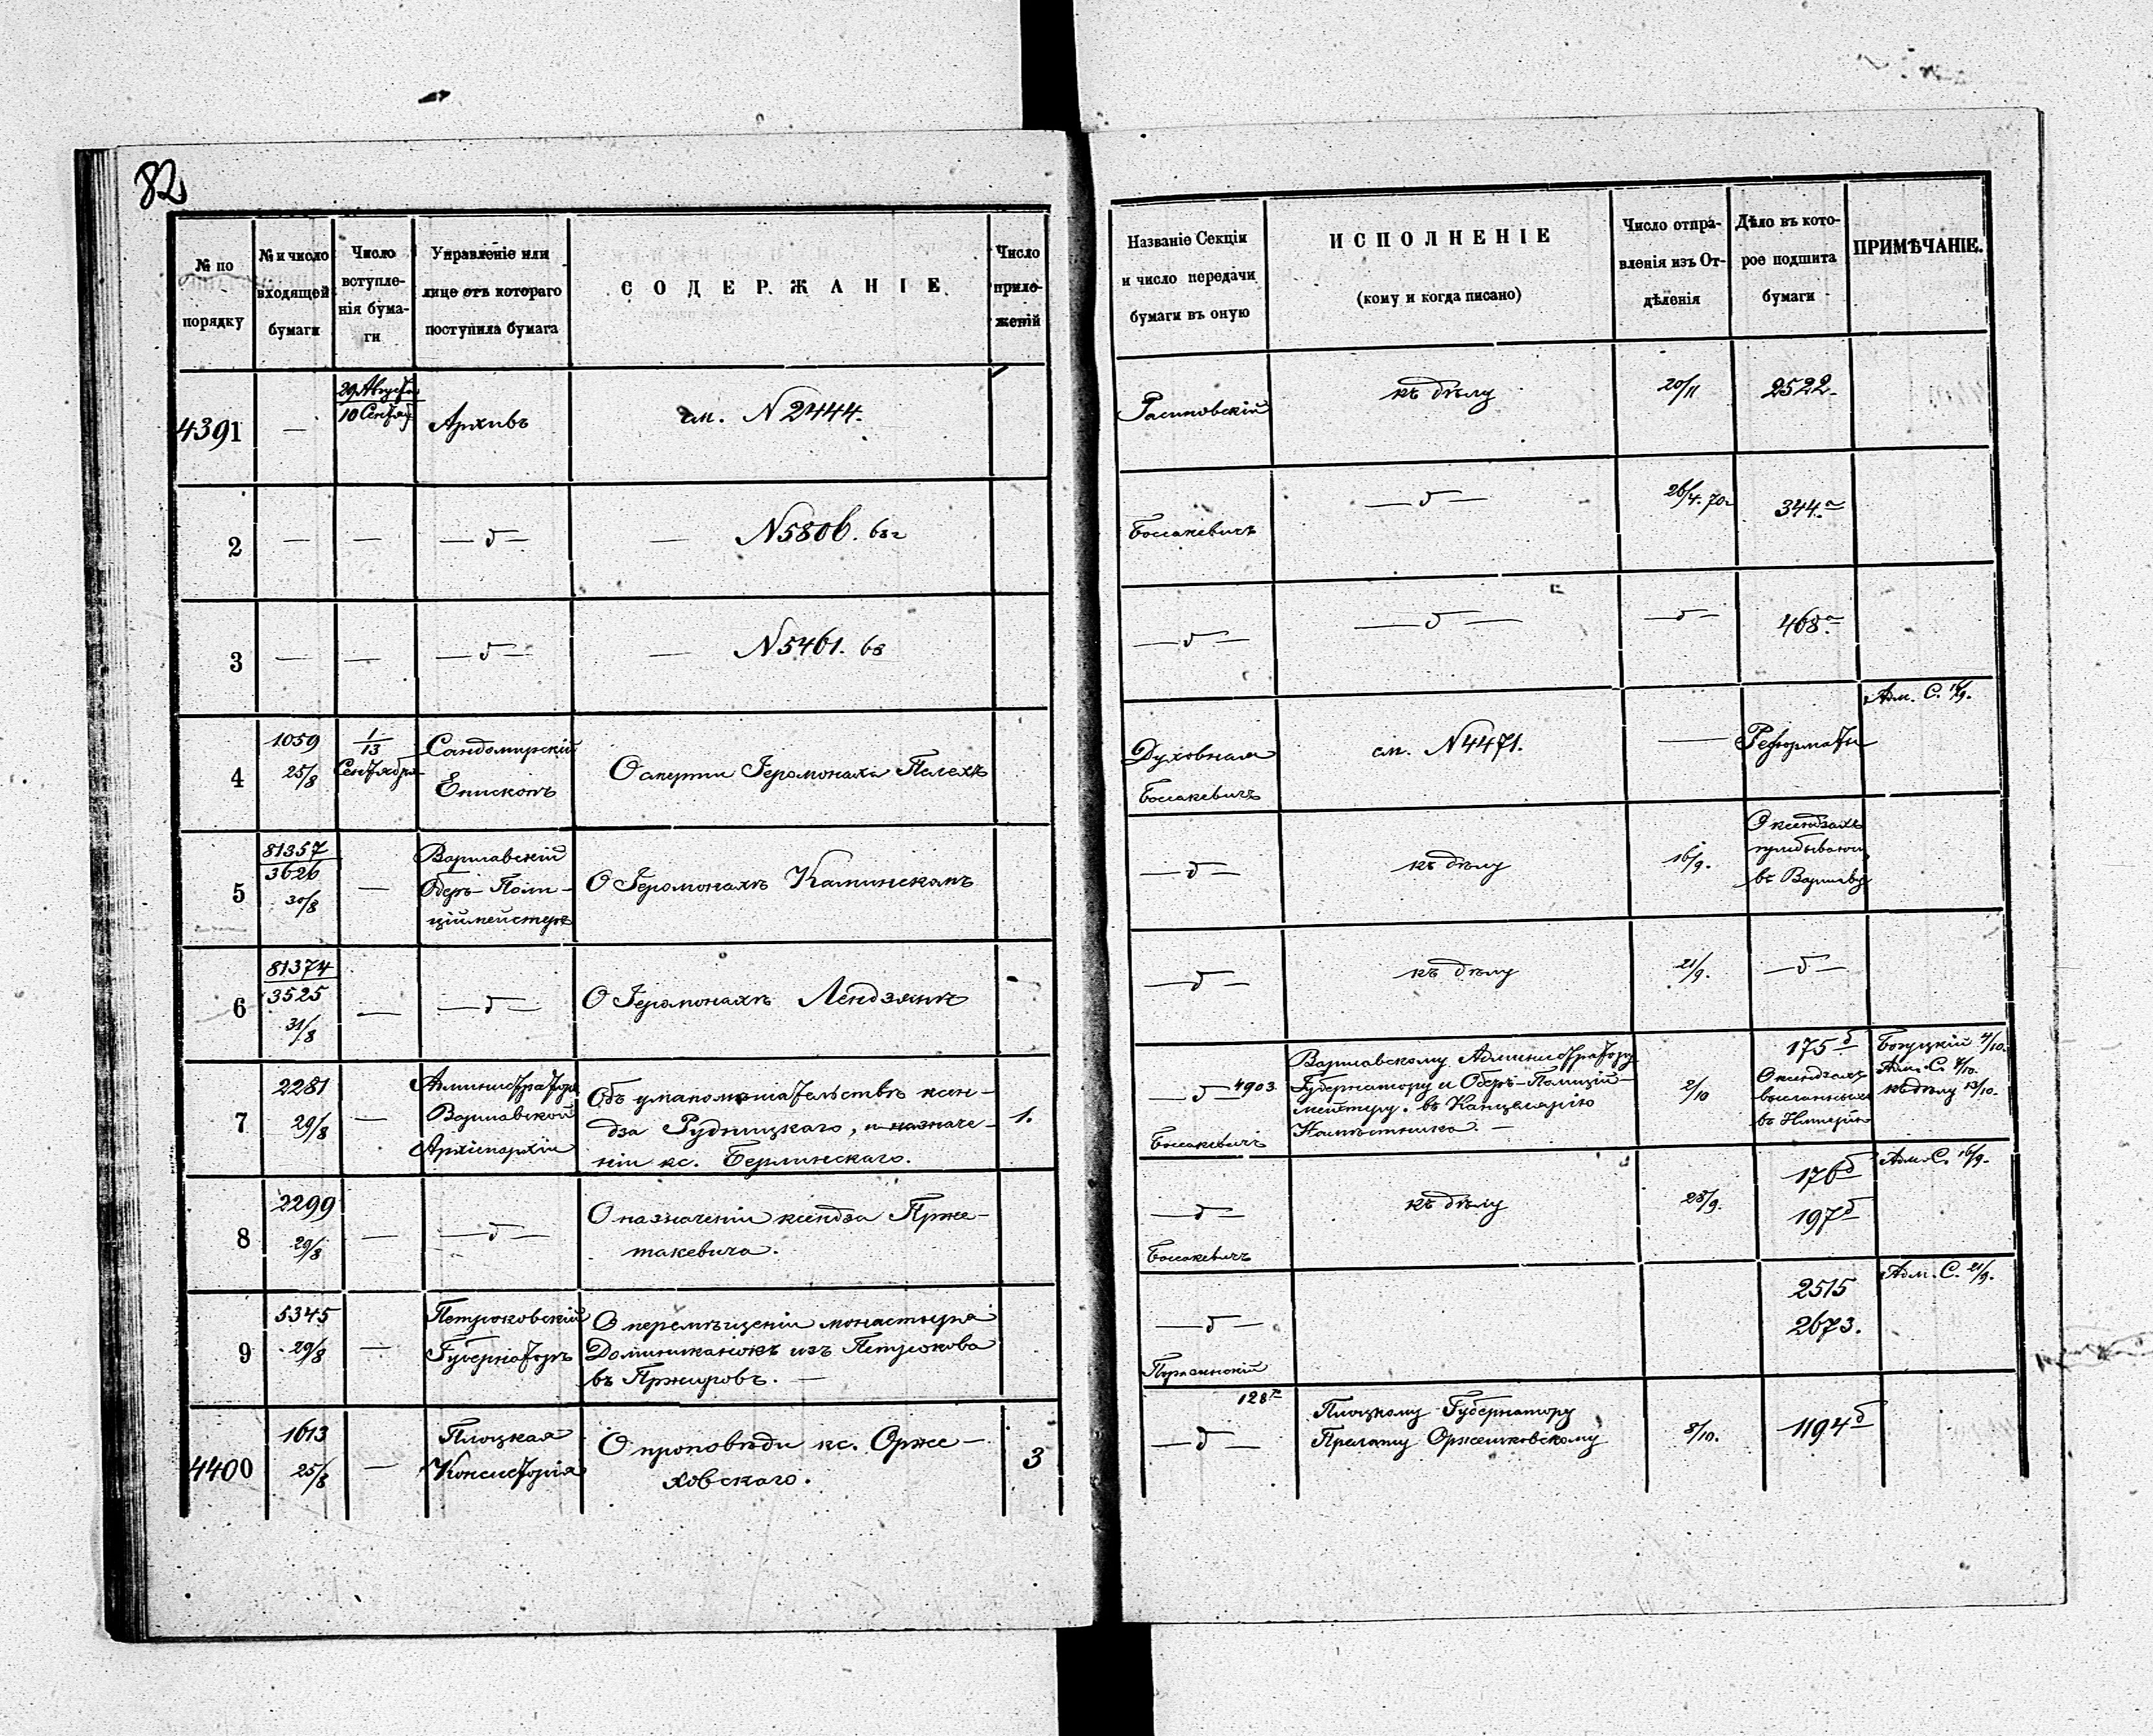 82
№ по
порядку
№ и число
входящей
бумаги
Число
вступле-
нія бума-
ги
Управленіе или
лице отъ котораго
поступила бумага
СОДЕРЖАНІЕ
Число
прило-
женій
Названіе Секціи
и число передачи
бумаги въ оную
ИСПОЛНЕНІЕ
(кому и когда писано)
Число отпра-
вленія изъ От-
дѣленія
Дѣло въ кото-
рое подшита
бумаги
ПРИМѢЧАНІЕ.
4391
—
29 Августа
10 Сентяб
Архивъ
см. N 2444.
къ дѣлу
20/11
2522.
2
—
—
— " —
— N 5806.
Боссакевичъ
— " —
26/4. 70г
344.а
3
—
—
— " —
— N 5461.
— " —
— " —
— " —
468.а
4
1059
25/8
1/13
Сентября
Сандомирскій
Епископъ
О смерти Іеромонаха
Духовная
Боссакевичъ
см. N 4471.
—
Реформаты
Адм. С.
5
81357
3626
30/8
—
Варшавскій
Оберъ-Поли-
ційместеръ
О Іеромонахѣ Каминскомъ
— " —
къ дѣлу
16/9.
О ксендзахъ
въ Варшаву
6
81374
3525
31/8
—
— " —
О Іеромонахѣ
— " —
къ дѣлу
21/9.
— " —
7
2281
29/8
—
Администраторъ
Варшавской
Архіепархіи
Объ умапомѣшательствѣ ксен-
дза Рудницкаго, и назначе-
ніи кс. Берлинскаго.
1.
— " — 4903
Боссакевичъ
Варшавскому Администратору
Губернатору и Оберъ-Полицій-
мейстеру. въ Канцелярію
Намѣстника. —
2/10
175 б
О ксендзахъ
высланныхъ
въ Имперію
4/10.
Адм. С. 7/10.
къ дѣлу 13/10.
8
2299
29/8
—
— " —
О назначеніи ксендза Прже-
такевича.
— " —
Боссакевичъ
къ дѣлу
23/9.
176 б
197 б
Адм. С. 16/9.
9
5345
29/8
—
Петроковскій
Губернаторъ
О перемѣщеніи монастыря
Доминиканокъ изъ Петрокова
въ Пржировъ. —
— " —
2515
2673.
Адм. С. 21/9.
4400
1613
25/8
—
Плоцкая
Консисторія
О проповѣди кс. Орже-
ховскаго.
3
128
— " —
Плоцкому Губернатору
Прелату
8/10.
1194 б